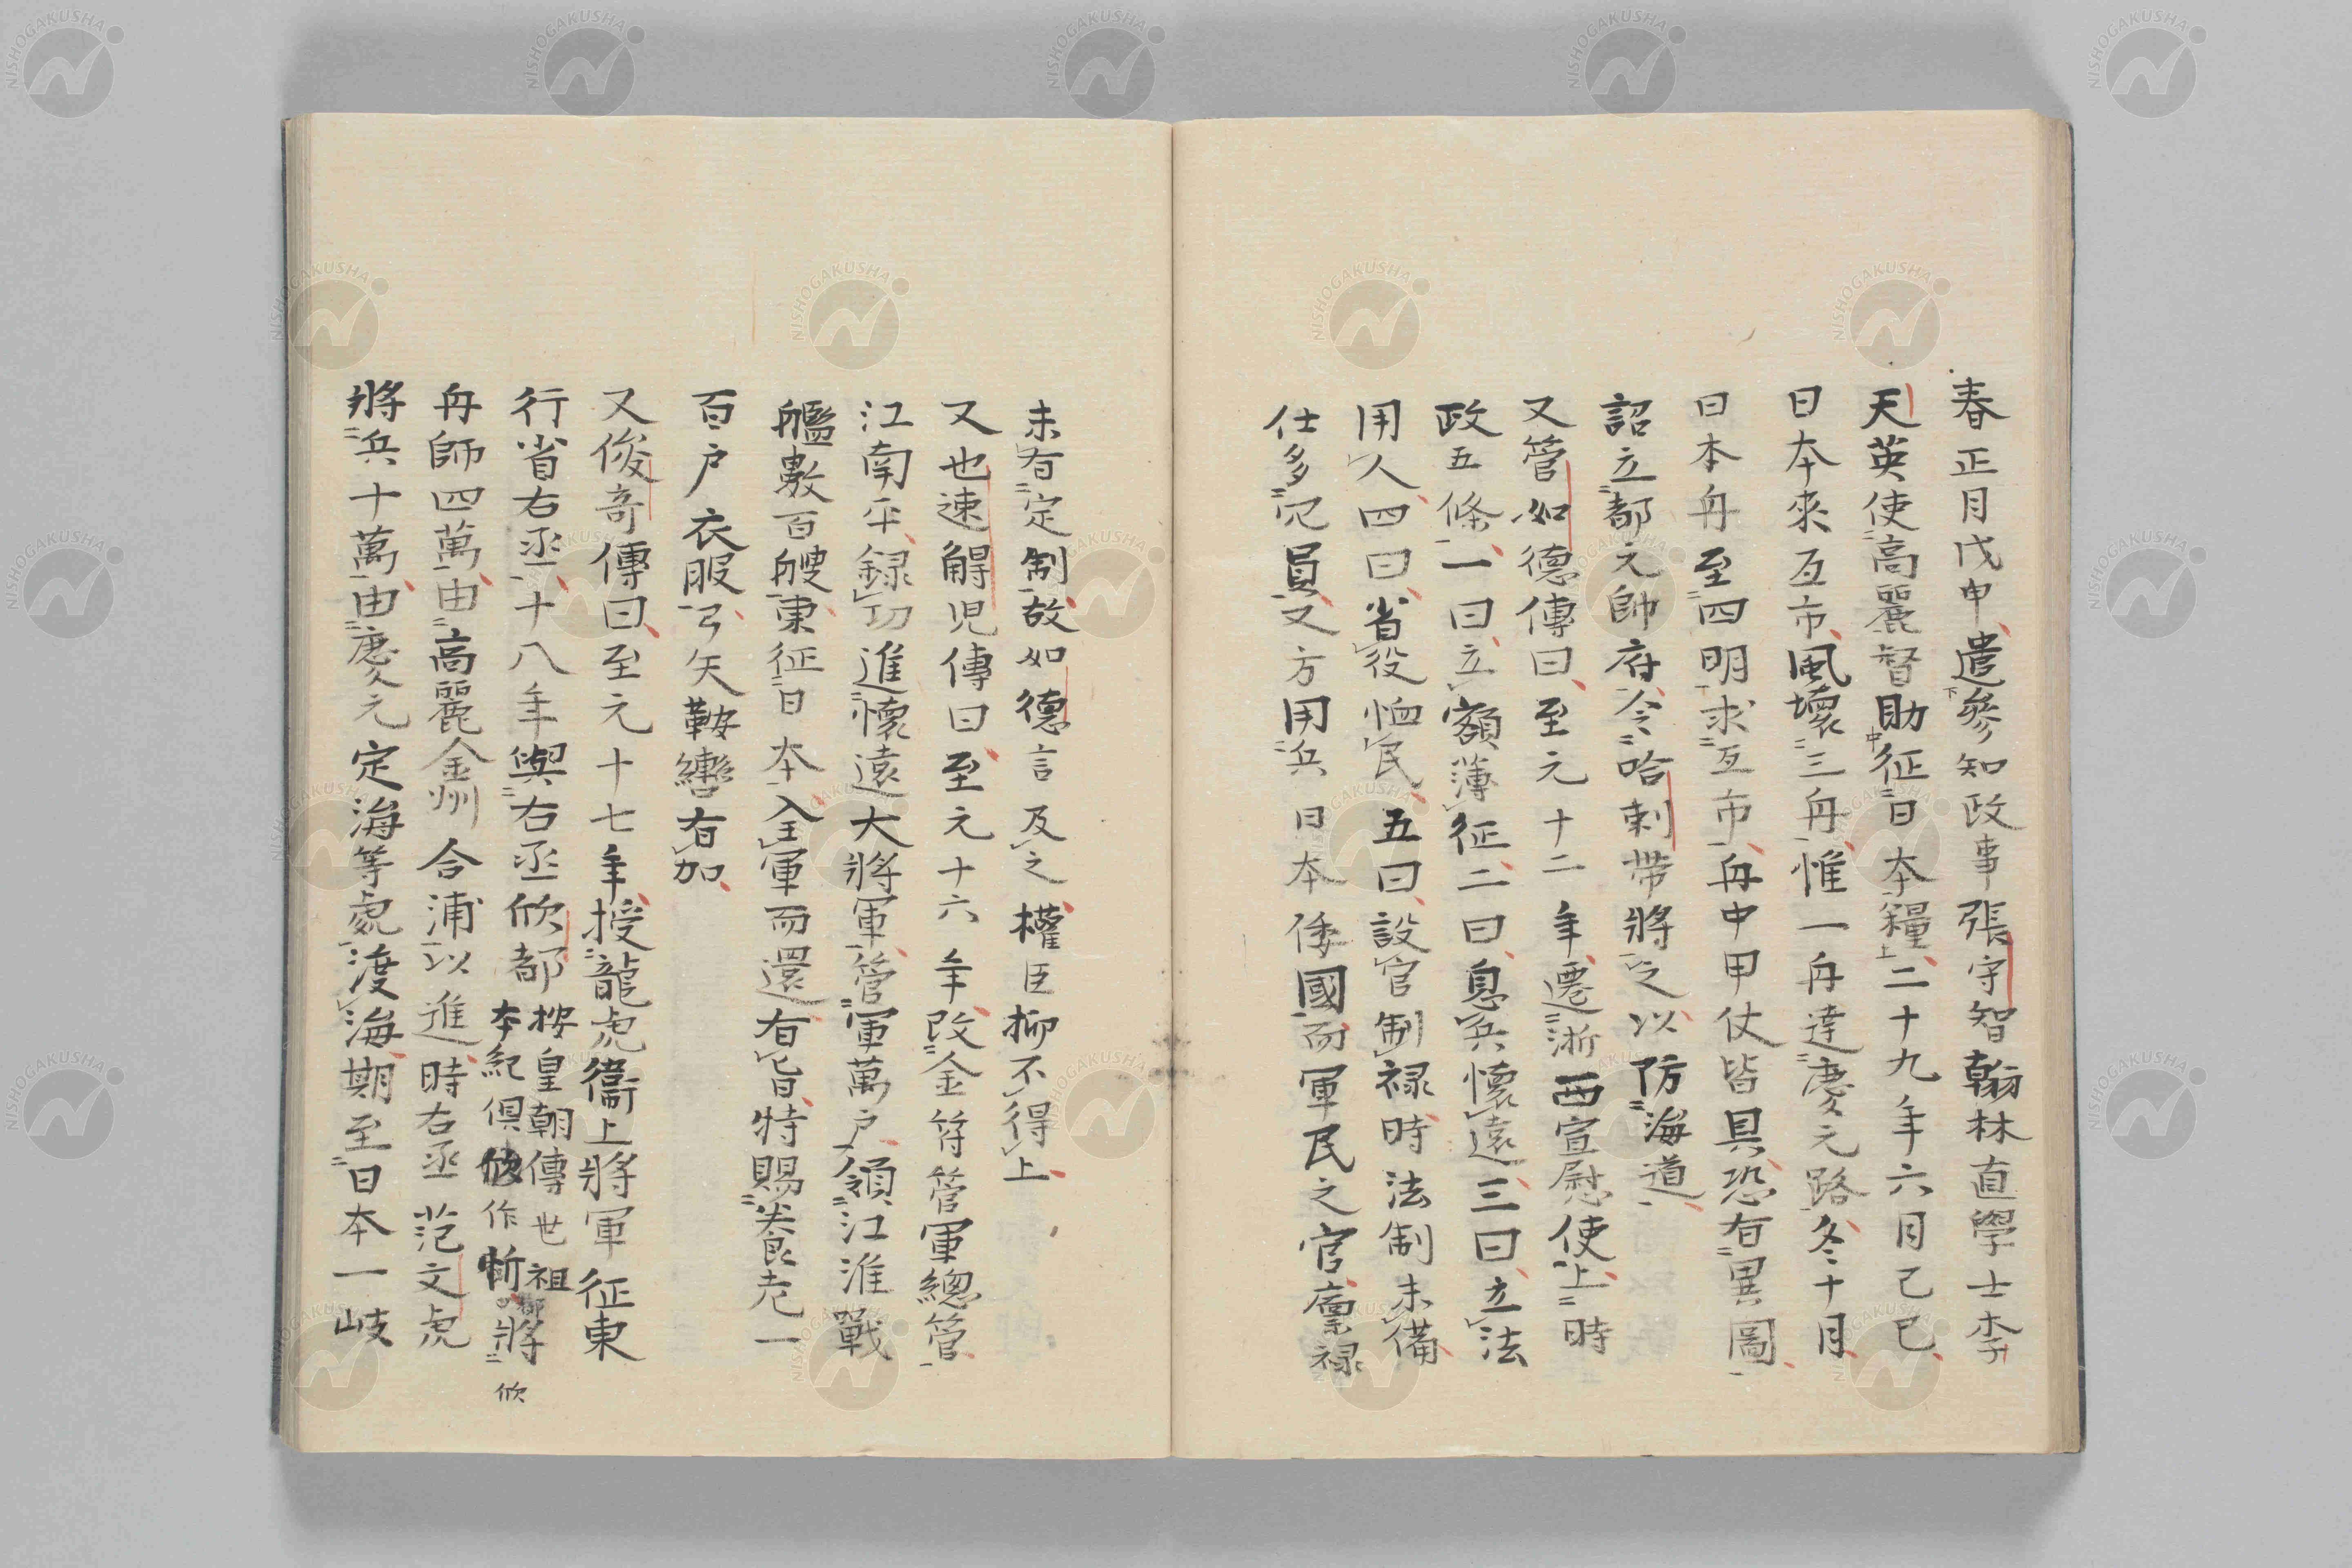 春正月戊申遣參知政事張守智翰林直學士李
天英使高麗督助征日本糧二十九年六月己巳
日本來互市風壞三舟惟一舟達慶元路冬十月
日本舟至四明求互市舟中甲仗皆具恐有異圖
詔立都元帥府令哈剌帶將之以防海道
又管如德傳曰至元十二年遷浙西宣慰使上時
政五條一曰立額薄征二曰息兵懷遠三曰立法
用人四曰省役恤民五曰設官制禄時法制未備
仕多冗員又方用兵日本倭國而軍民之官廩禄
未有定制故如德言及之權臣抑不得上
又也速䚟児傳曰至元十六年改金符管軍總管
江南平録功進懷遠大將軍管軍萬戸領江淮戰
艦數百艘東征日本全軍而還有旨特賜養老一
百戸衣服弓矢鞍轡有加
又俊奇傳曰至元十七年授龍虎衛上將軍征東
行省右丞十八年與右丞欣都
按皇朝傳世祖
本紀俱作忻都
將
欣
舟師四萬由高麗金州合浦以進時右丞范文虎
將兵十萬由慶元定海等處渡海期至日本一岐